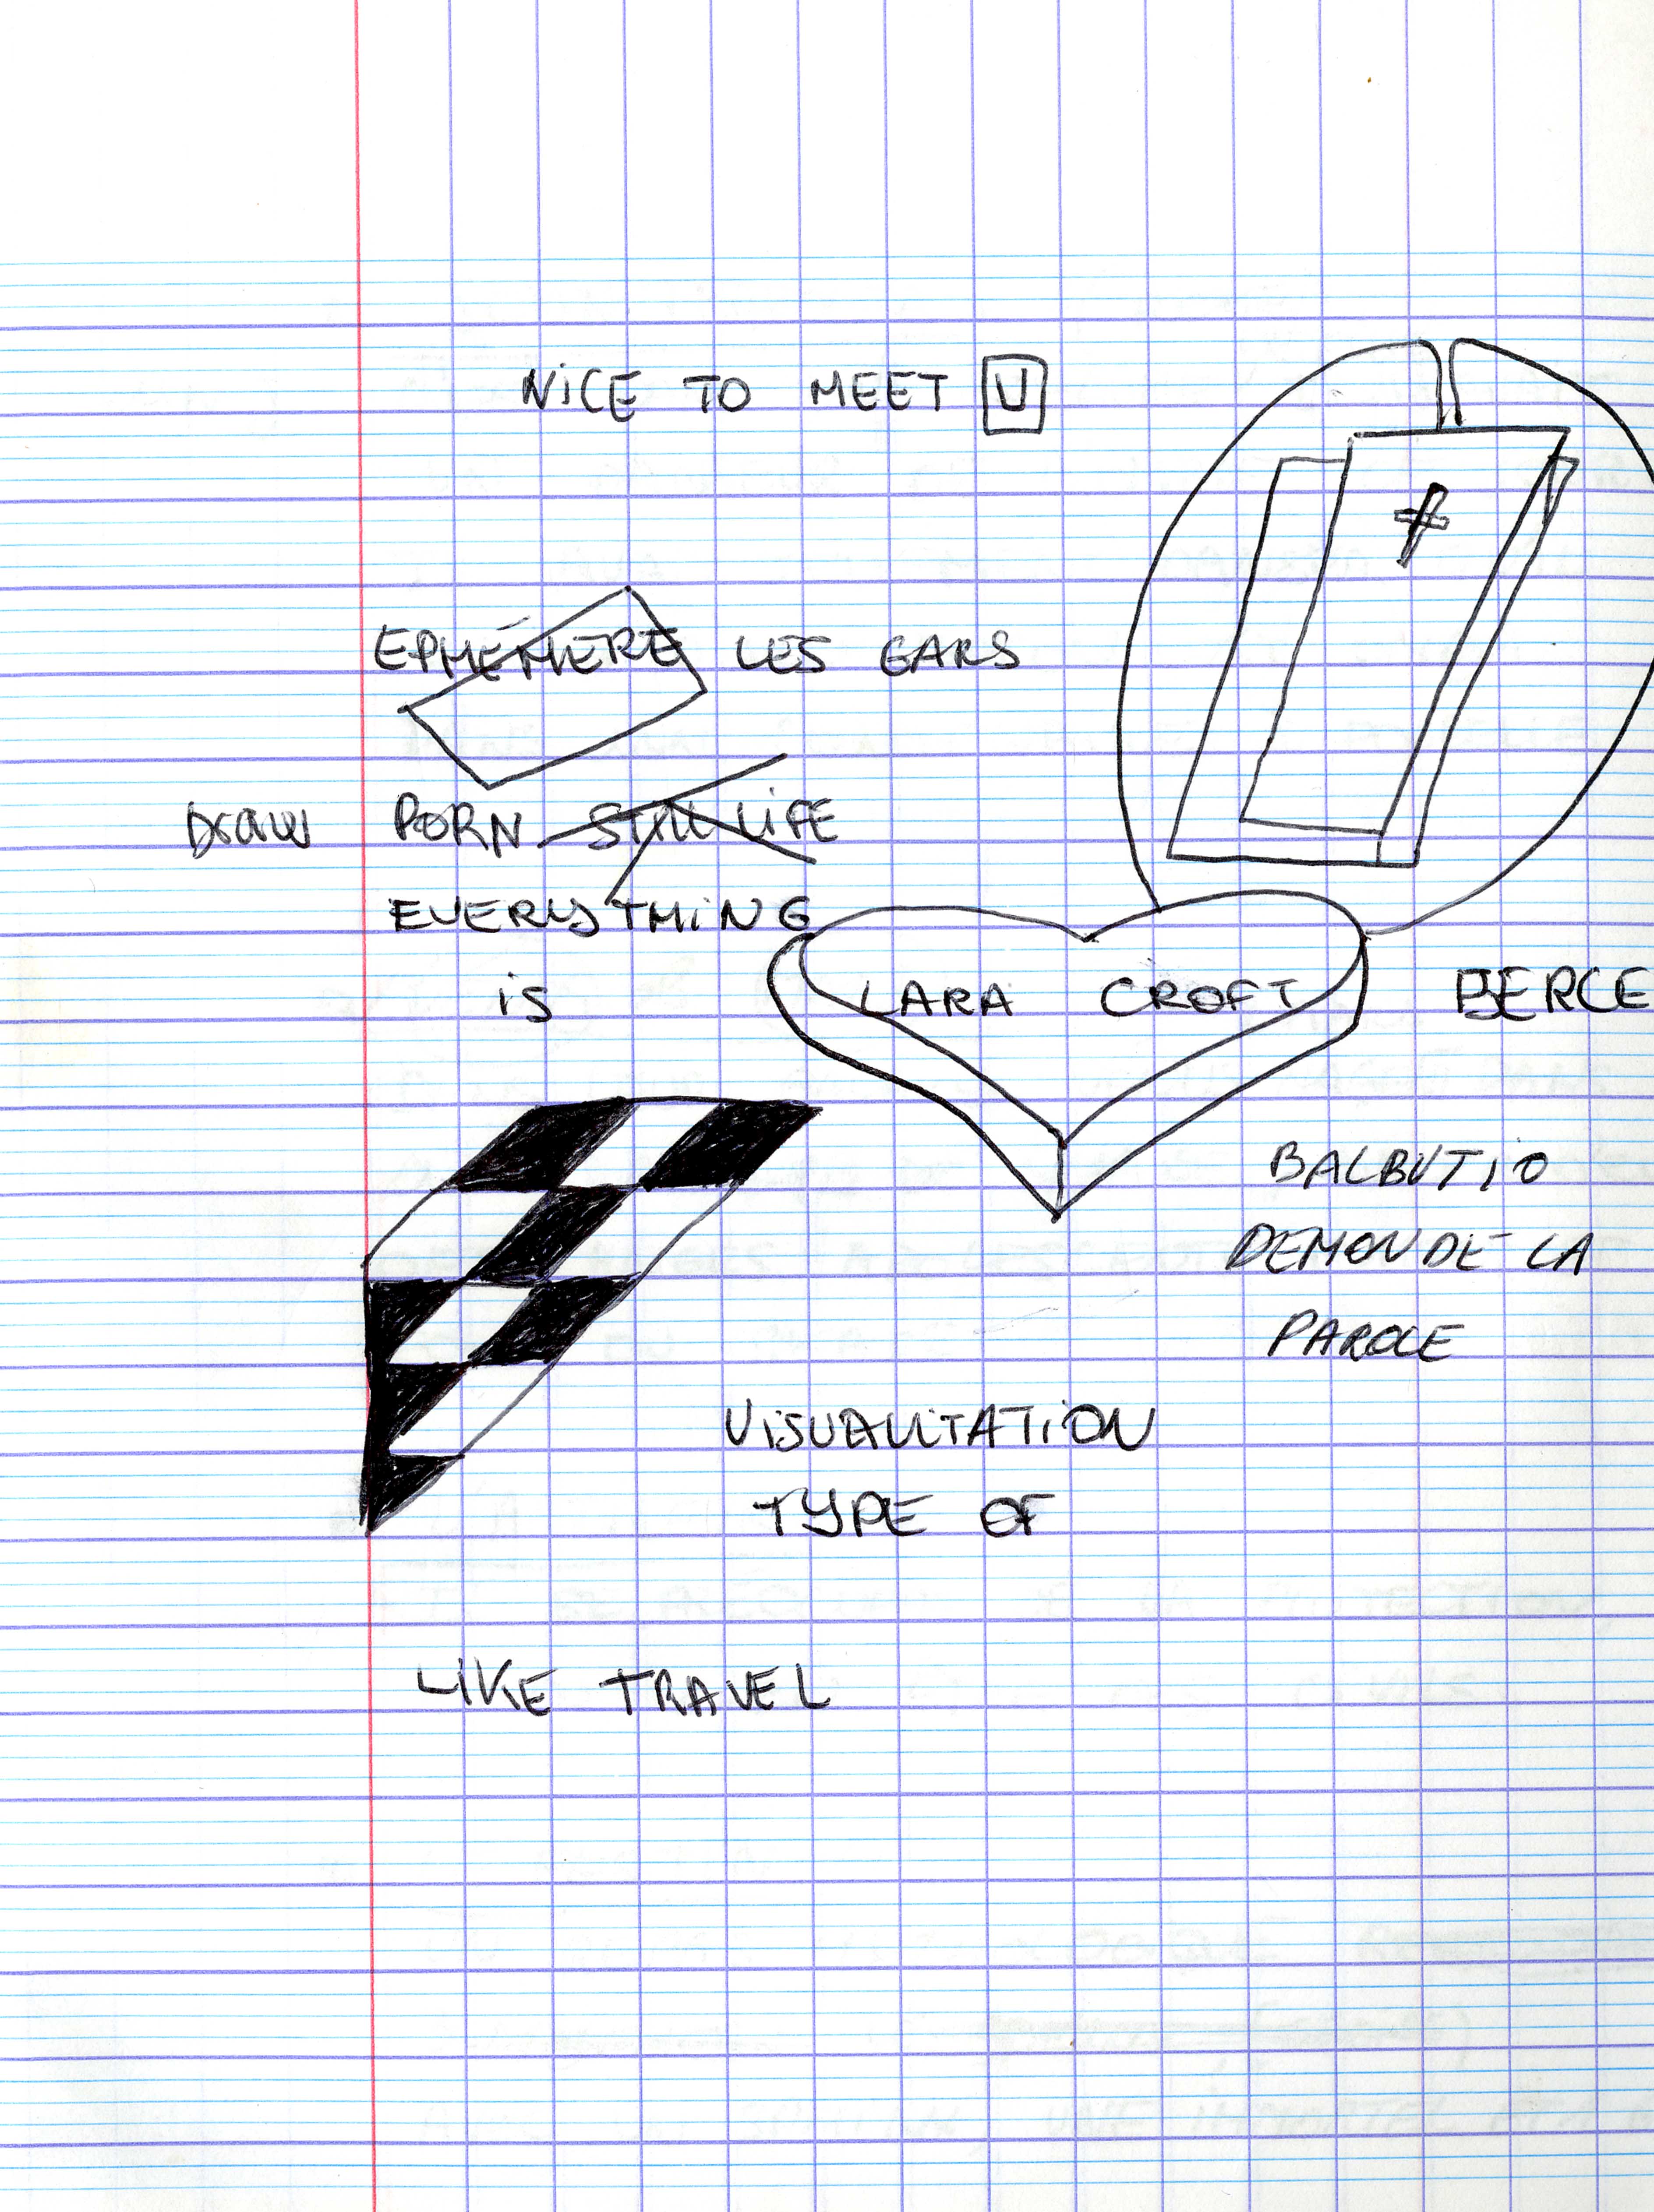 NiCE TO MEET U
EPHÉMÈRE LES GARS
DRAW PORN STILL LiFE
EVERYTHiNG
iS LARA CROFT BERCE
BALBUTIO
DEMON DE LA
PAROLE
ViSUALITATiON
TYPE OF
LiKE TRAVEL